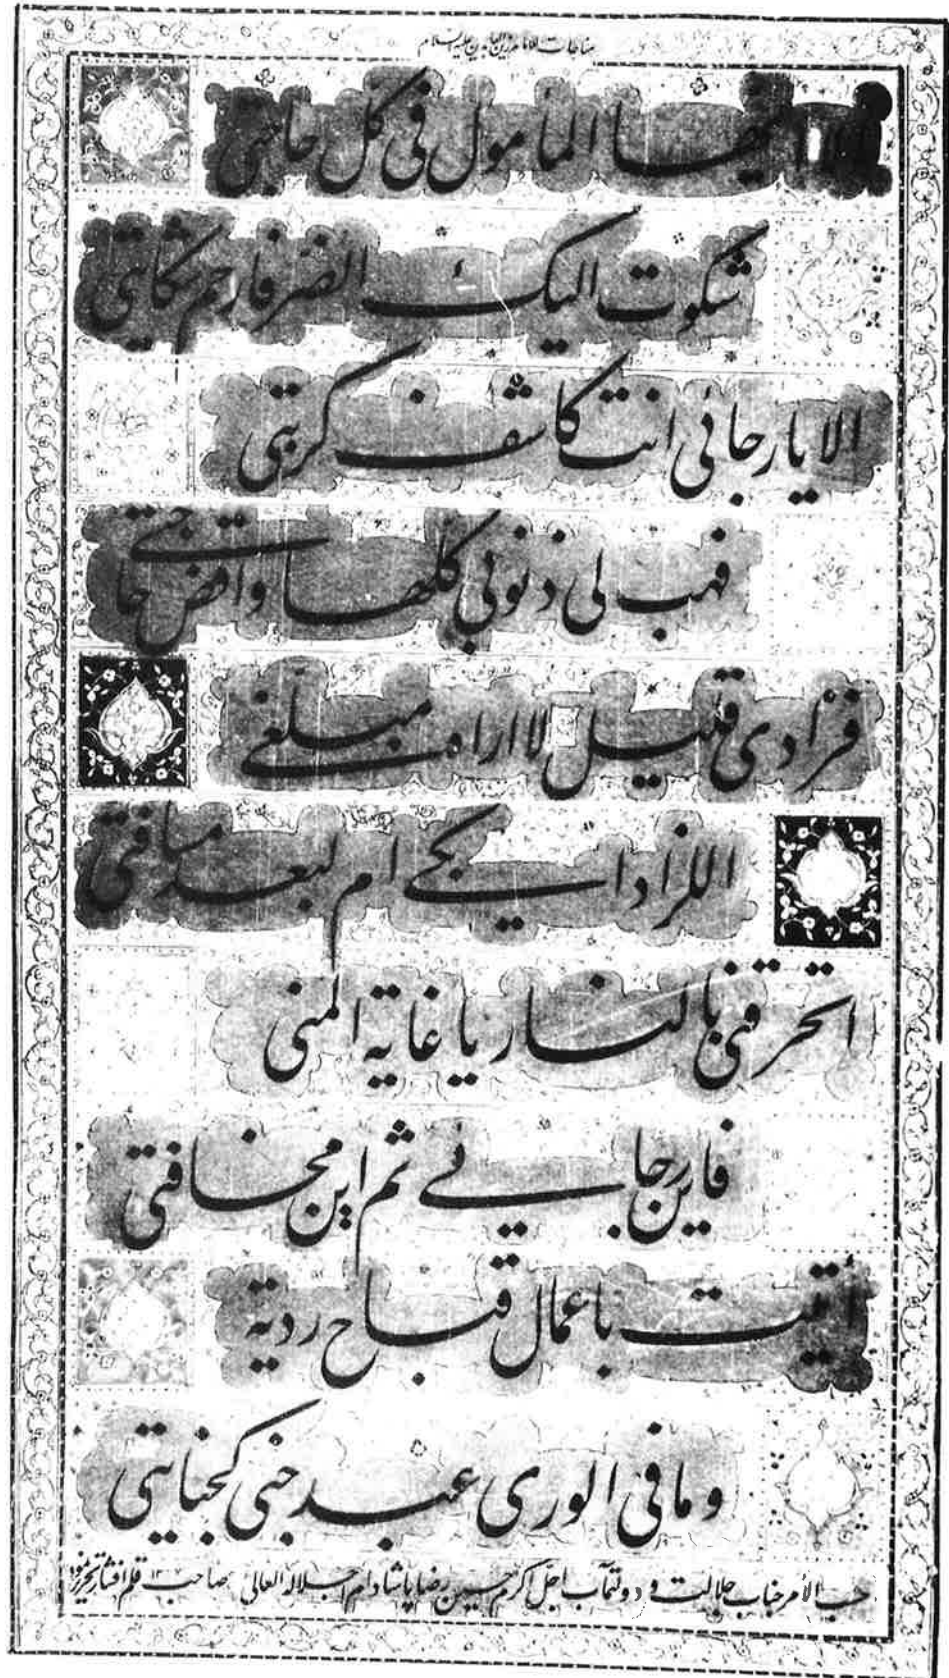 مناجات الامام زين العابدين عليه السلام
الا ايها المأمول في كل حاجتي
شكوت اليك الضر فارحم شكايتي
الا يا رجائي انت كاشف كربتي
فهب لي ذنوبي كلها واقض حاجتي
فزادي قليل لا اراه مبلغي
اللزاد ابكي ام لبعد مسافتي
اتحرقني بالنار يا غاية المنى
فاين رجائي ثم اين مخافتي
أتيت باعمال قباح ردية
وما في الورى عبد جنى كجنايتي
حسب الأمر جناب جلالت و دولتمآب اجل اكرم حسين رضا پاشا دام اجلاله العالى صاحب قلم افشار تحرير نمود